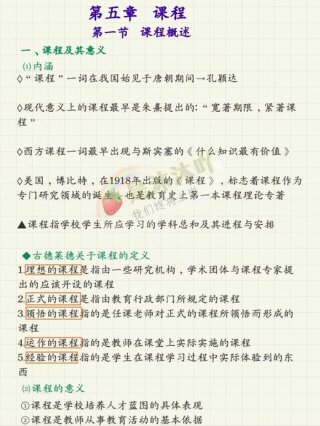 第五章 课程
第一节 课程概述
一、课程及其意义
⑴内涵
◊“课程”一词在我国始见于唐朝期间→孔颖达
◊现代意义上的课程最早是朱熹提出的:“宽著期限，紧著课
程”
◊西方课程一词最早出现与斯宾塞的《什么知识最有价值》
◊美国，博比特，在1918年出版的《课程》，标志着课程作为
专门研究领域的诞生，也是教育史上第一本课程理论专著
▲课程指学校学生所应学习的学科总和及其进程与安排
◆古德莱德关于课程的定义
1.理想的课程是指由一些研究机构，学术团体与课程专家提
出的应该开设的课程
2.正式的课程是指由教育行政部门所规定的课程
3.领悟的课程指的是任课老师对正式的课程所领悟而形成的
课程
4.运作的课程指的是教师在课堂上实际实施的课程
5.经验的课程指的是学生在课程学习过程中实际体验到的东
西
⑵课程的意义
①课程是学校培养人才蓝图的具体表现
②课程是教师从事教育活动的基本依据